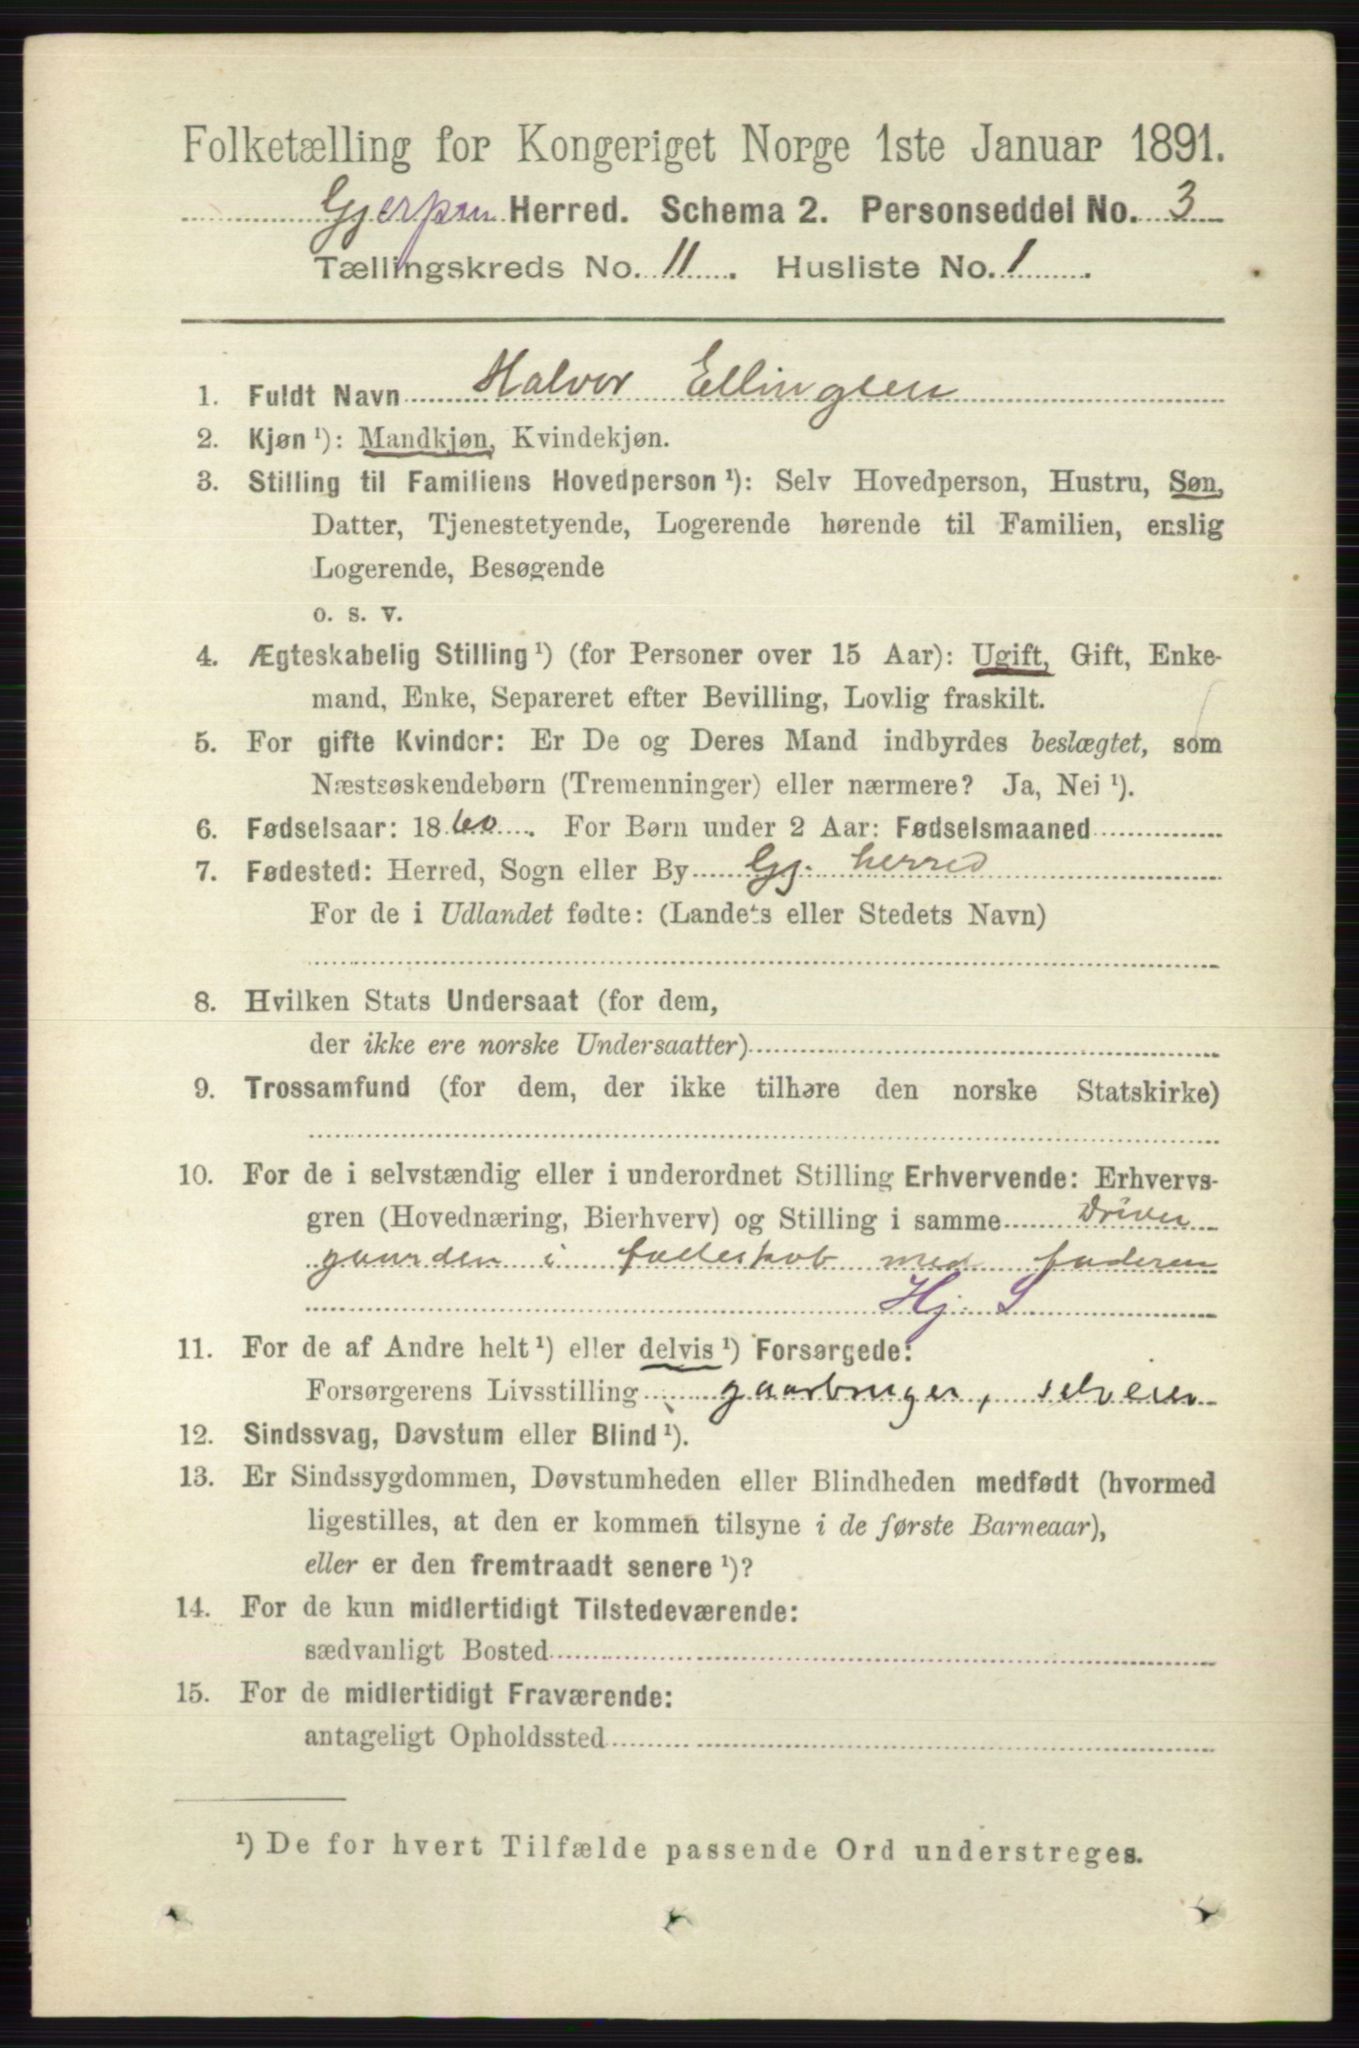 Folketælling for Kongeriget Norge 1ste Januar 1891.
Gjerpen Herred. Schema 2. Personseddel No. 3
Tællingskreds No. 11. Husliste No. 1.
1. Fuldt Navn Halvor Ellingsen
2. Kjøn ¹): Mandkjøn, Kvindekjøn.
3. Stilling til Familiens Hovedperson ¹): Selv Hovedperson, Hustru, Søn,
Datter, Tjenestetyende, Logerende hørende til Familien, enslig
Logerende, Besøgende
o. s. v.
4. Ægteskabelig Stilling ¹) (for Personer over 15 Aar): Ugift, Gift, Enke-
mand, Enke, Separeret efter Bevilling, Lovlig fraskilt.
5. For gifte Kvinder: Er De og Deres Mand indbyrdes beslægtet, som
Næstsøskendebørn (Tremenninger) eller nærmere? Ja, Nei ¹).
6. Fødselsaar: 1860. For Børn under 2 Aar: Fødselsmaaned
7. Fødested: Herred, Sogn eller By Gj. herred
For de i Udlandet fødte: (Landets eller Stedets Navn)
8. Hvilken Stats Undersaat (for dem,
der ikke ere norske Undersaatter)
9. Trossamfund (for dem, der ikke tilhøre den norske Statskirke)
10. For de i selvstændig eller i underordnet Stilling Erhvervende: Erhvervs-
gren (Hovednæring, Bierhverv) og Stilling i samme Driver
gaarden i fælleskab med faderen
Hj. S
11. For de af Andre helt ¹) eller delvis ¹) Forsørgede:
Forsørgerens Livsstilling gaarbruger, selveier
12. Sindssvag, Døvstum eller Blind ¹).
13. Er Sindssygdommen, Døvstumheden eller Blindheden medfødt (hvormed
ligestilles, at den er kommen tilsyne i de første Barneaar),
eller er den fremtraadt senere ¹)?
14. For de kun midlertidigt Tilstedeværende:
sædvanligt Bosted
15. For de midlertidigt Fraværende:
antageligt Opholdssted
¹) De for hvert Tilfælde passende Ord understreges.